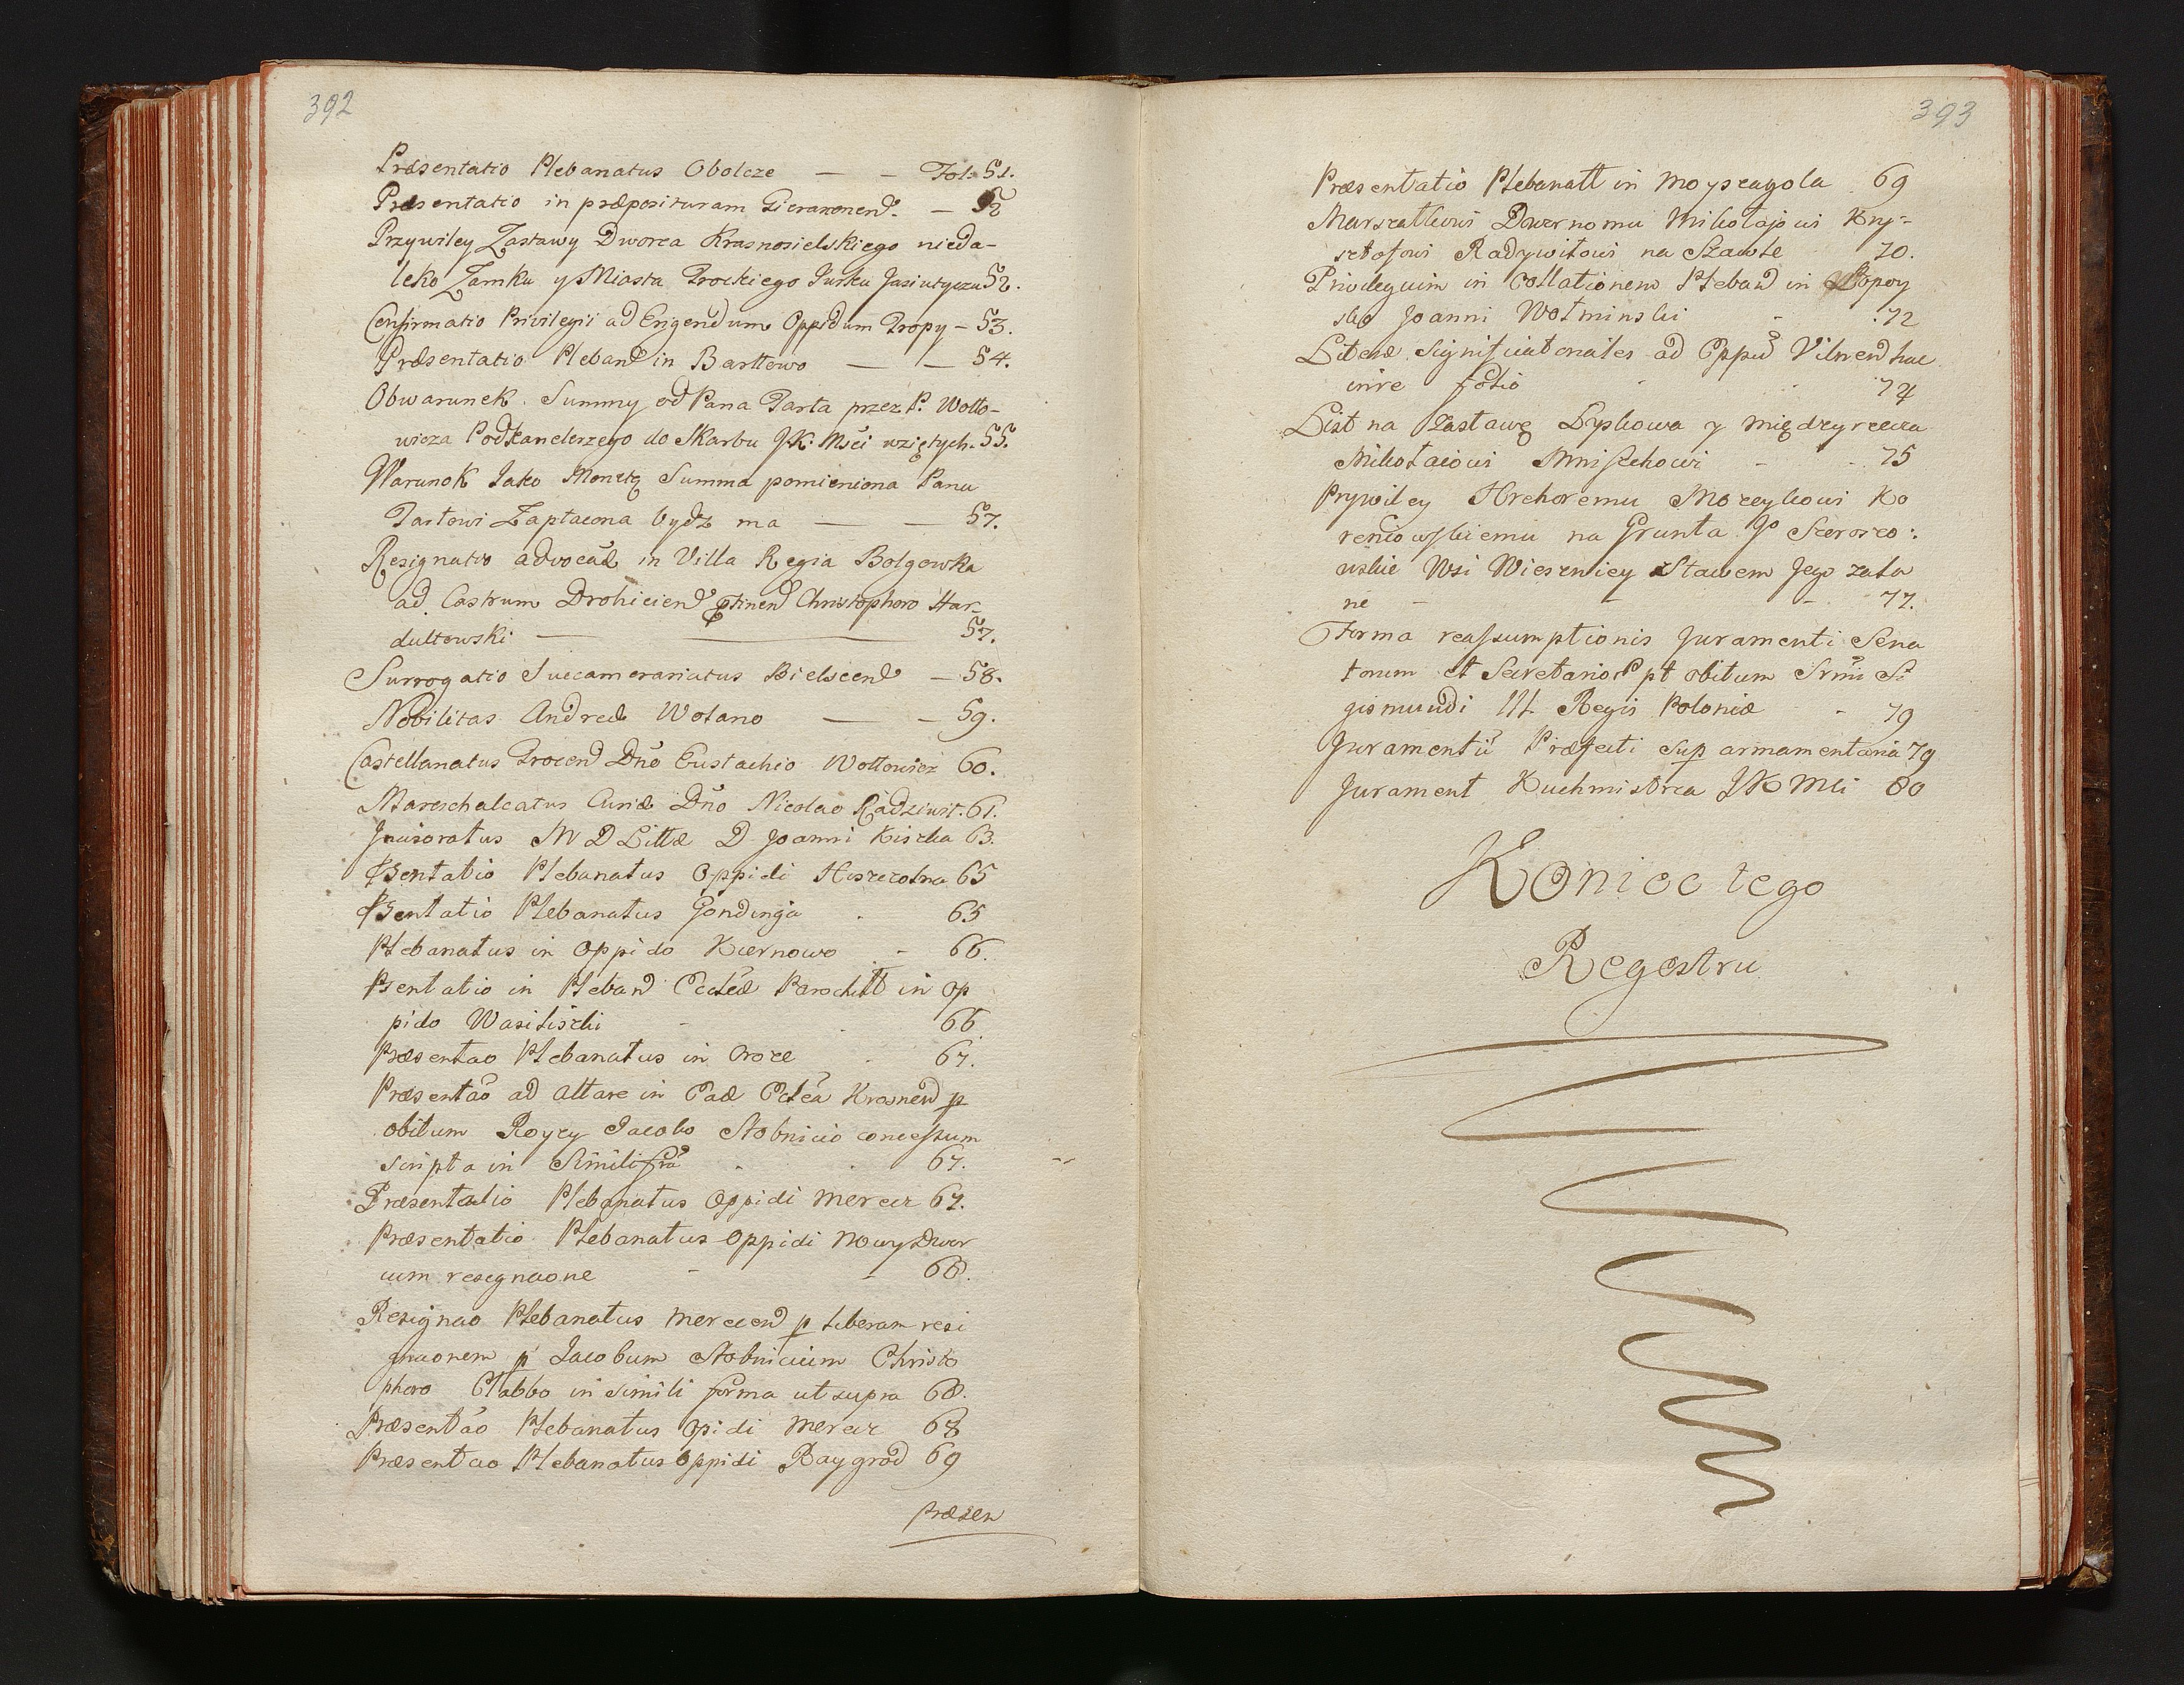 392
Præsentatio Plebanatus Obolcze — — Fol. 51.
Præsentatio in præposituram Gieranonend. — 52
Przywiley Zastawy Dworca Krasnosielskiego nieda-
leko Zamku y Miasta Trockiego Jurku Jasiutyczu 52.
Confirmatio Privilegii ad Erigendum Oppidum Tropy – 53.
Præsentatio Pleband in Barttowo — — 54.
Obwarunek Summy od Pana Tarta przez P. Wołło-
wicza Podkanclerzego do Skarbu JK. Mści wziętych. 55.
Warunok Jako Monetą Summa pomieniona Panu
Tartowi Zapłacona bydź ma — — 57.
Resignatio advocãæ in Villa Regia Bolgowka
ad Castrum Drohiciend ptinend Christophoro Har-
dultowski — — 57.
Surrogatio Succamerariatus Bielscend — 58.
Nobilitas Andreæ Wolano — — 59.
Castellanatus Trocend Dño Eustachio Wołłowicz 60.
Mareschalcatus Curiæ Dño Nicolao Radziwił. 61.
Incisoratus M D Littæ D Joanni Kiszka 63.
Psentatio Plebanatus Oppidi Hoszczolna 65
Psentatio Plebanatus Gondinga . 65
Plebanatus in Oppido Kiernowo - 66.
Psentatio in Pleband Eccleæ Parochitt in Op
pido Wasiliszki - . 66.
Præsentao Plebanatus in Oroze . 67.
Præsentaõ ad Altare in Eadẽ Ecleã Krosnend p
obitum Royzy Jacobo Stobnicio concessum
scripta in Simili frã . . 67.
Præsentatio Plebanatus Oppidi Merecz 67.
Præsentatio Plebanatus Oppidi Nowy Dwor
cum resegnaone - - 68.
Resignao Plebanatus Merecend p liberam resi
gnaonem p Jacobum Stobnicium Christo
phoro Clabbo in simili forma ut supra 68.
Præsentão Plebanatus Opidi Merecz 68
Præsentao Plebanatus Oppidi Raygrod 69
Præsen
393
Præsentatio Plebanatt in Moyszagola . 69
Marszałkowi Dwornomu Mikołajowi Kry-
sztofowi Radziwiłowi na Szawle 70.
Privileguim in Collationem Pleband in Łopoy
sko Joanni Wołminski - . 72
Literæ significatoriales ad Oppũ Vilnend hac
inire folio - . 74
List na Zastawę Łyskowa y międzyrzecza
Mikołaiowi Mniszchowi - - 75
Prywiley Hrehoremu Moceykowi Ko
renciowskiemu na Grunta Jo Szerosze:
wskie Wsi Wieszniey Stawem Jego zala
ne - - - 77.
Forma reassumptionis Juramenti Sena
torum et Secretarior pt obitum Srmi Si
gismundi III. Regis Poloniæ - 79
Juramentũ Præfecti sup armamentaria 79
Jurament Kuchmistrza JK Mci 80
Koniec tego
Regestru